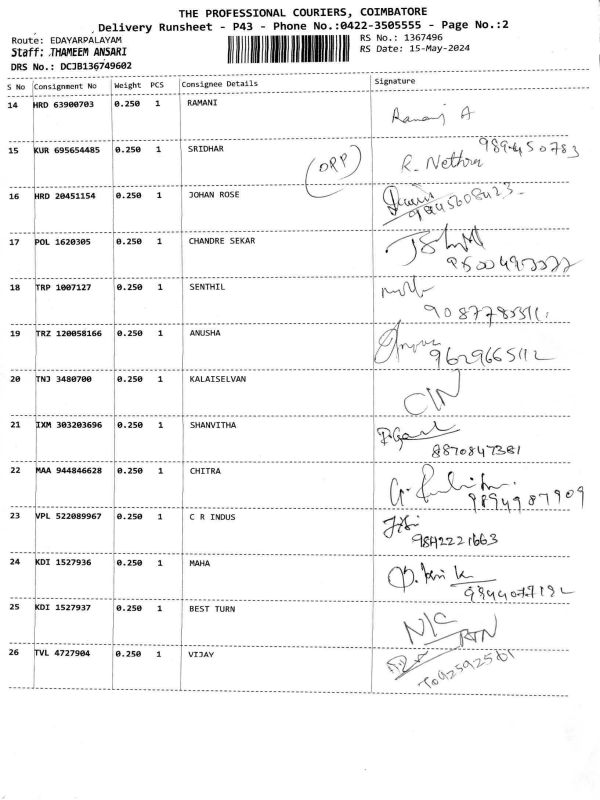 THE PROFESSIONAL COURIERS, COIMBATORE
Delivery Runsheet - P43 - Phone No.:0422-3505555 - Page No.:2
Route: EDAYARPALAYAM RS No.: 1367496
Staff: THAMEEM ANSARI RS Date: 15-May-2024
DRS No.: DCJB136749602
S No Consignment No Weight PCS Consignee Details Signature
14 HRD 63900703 0.250 1 RAMANI
15 KUR 695654485 0.250 1 SRIDHAR R. Nethra
16 HRD 20451154 0.250 1 JOHAN ROSE
17 POL 1620305 0.250 1 CHANDRE SEKAR
18 TRP 1007127 0.250 1 SENTHIL
19 TRZ 120058166 0.250 1 ANUSHA
9629665112
20 TNJ 3480700 0.250 1 KALAISELVAN
21 IXM 303203696 0.250 1 SHANVITHA
8870847381
22 MAA 944846628 0.250 1 CHITRA
9894987909
23 VPL 522089967 0.250 1 C R INDUS
9842221663
24 KDI 1527936 0.250 1 MAHA
25 KDI 1527937 0.250 1 BEST TURN N/C
RTN
26 TVL 4727904 0.250 1 VIJAY